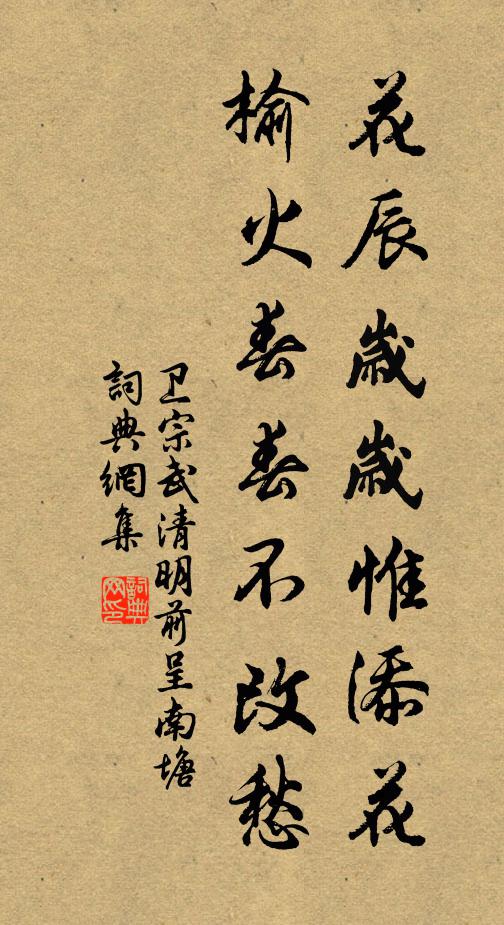 花辰歲歲惟添花
榆火春春不改愁
卫宗武清明前呈南塘
詞典網集
詞典网印